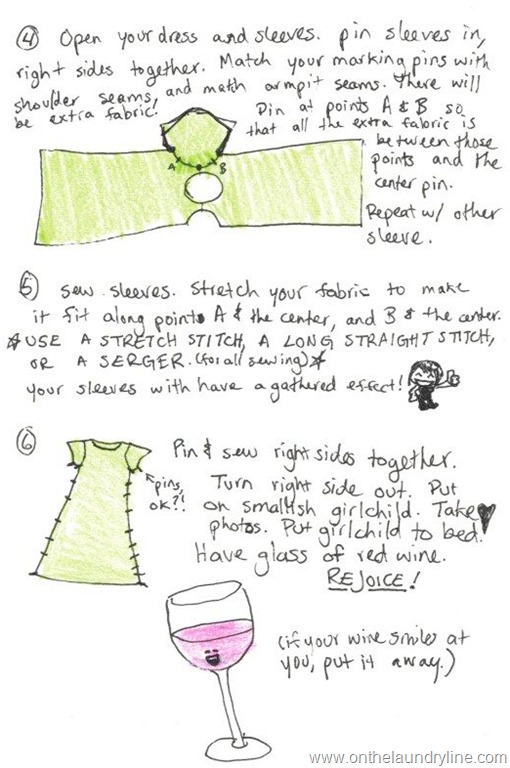 ④ Open your dress and sleeves. pin sleeves in,
right sides together. Match your marking pins with
shoulder seams, and math armpit seams. There will
be extra fabric!
Pin at points A & B so
that all the extra fabric is
between those
points and the
center pin.
Repeat w/ other
sleeve.
A
B
⑤ sew sleeves. Stretch your fabric to make
it fit along points A & the center, and B & the center.
☆USE A STRETCH STITCH, A LONG STRAIGHT STITCH,
OR A SERGER. (for all sewing)☆
your sleeves with have a gathered effect!
⑥ Pin & sew right sides together.
Turn right side out. Put
on smallish girlchild. Take
photos. Put girlchild to bed.
Have glass of red wine.
REJOICE!
pins,
ok?!
(if your wine smiles at
you, put it away.)
www.onthelaundryline.com